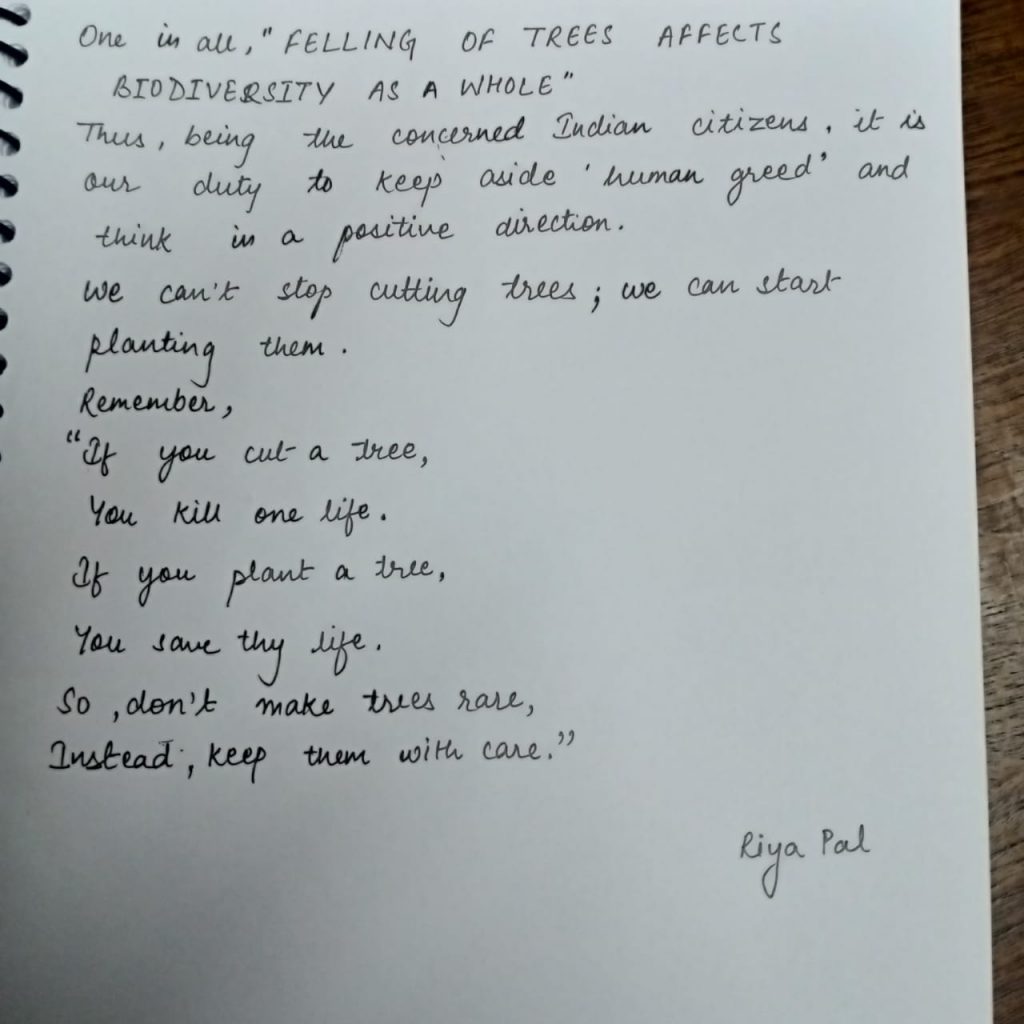 One in all, "FELLING OF TREES AFFECTS
BIODIVERSITY AS A WHOLE"
Thus, being the concerned Indian citizens, it is
our duty to keep aside 'human greed' and
think in a positive direction.
We can't stop cutting trees; we can start
planting them.
Remember,
"If you cut a tree,
You kill one life.
If you plant a tree,
You save thy life.
So, don't make trees rare,
Instead, keep them with care."
Riya Pal